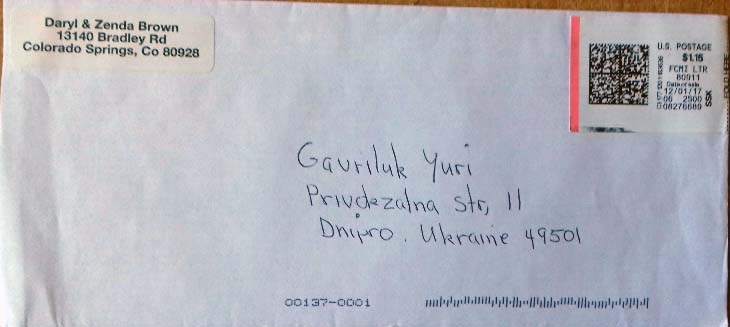 Daryl & Zenda Brown
13140 Bradley Rd
Colorado Springs, Co 80928
U.S. POSTAGE
$1.15
FCMI LTR
80911
Date of sale
12/01/17
06 2S00
08276680
SSK
Gavriluk Yuri
Privokzalna str, 11
Dnipro. Ukraine 49501
00137-0001